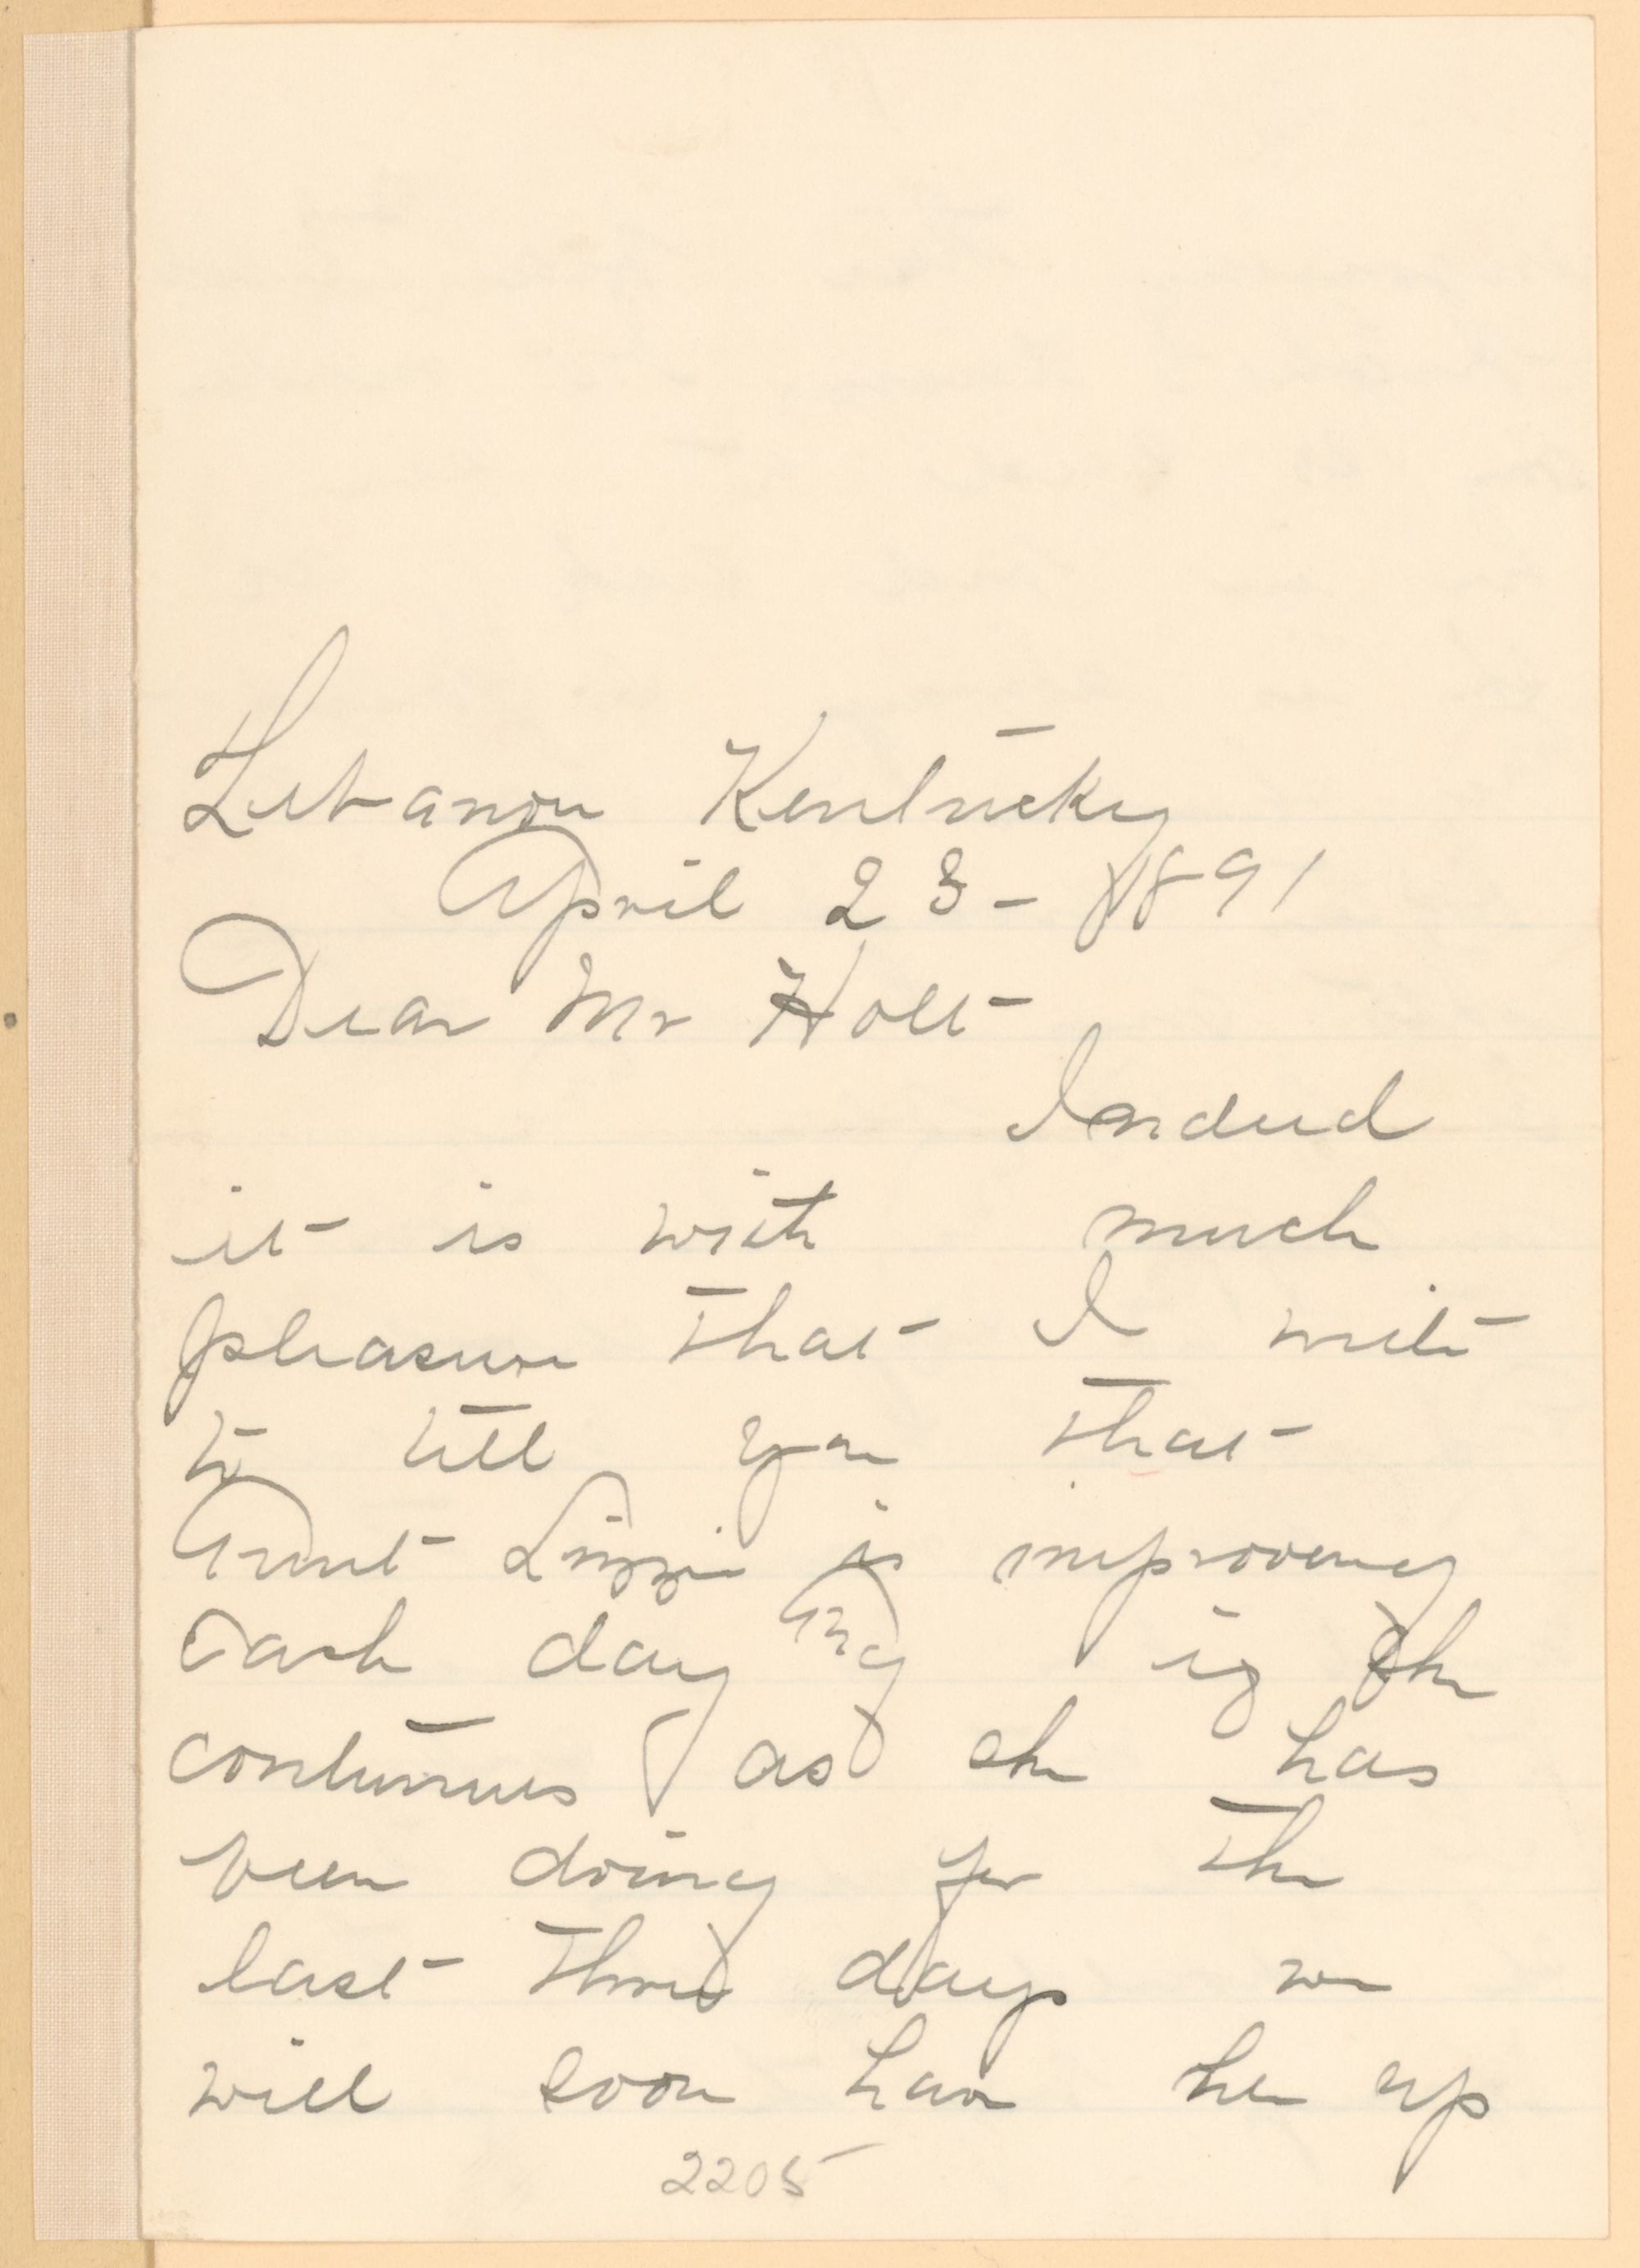 Lebanon Kentucky
April 23 - 1891
Dear Mr Holt
Indeed
it is with much
pleasure that I write
to tell you that
Aunt Lizzie is improving
Each day If she
continues as she has
been doing for the
last three days we
will soon have her up
2205